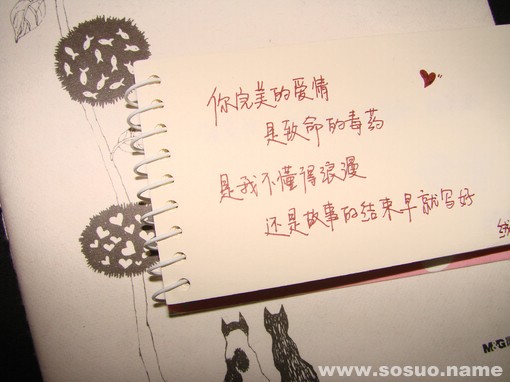 你完美的爱情
是致命的毒药
是我不懂得浪漫
还是故事的结束早就写好
M&G
www.sosuo.name